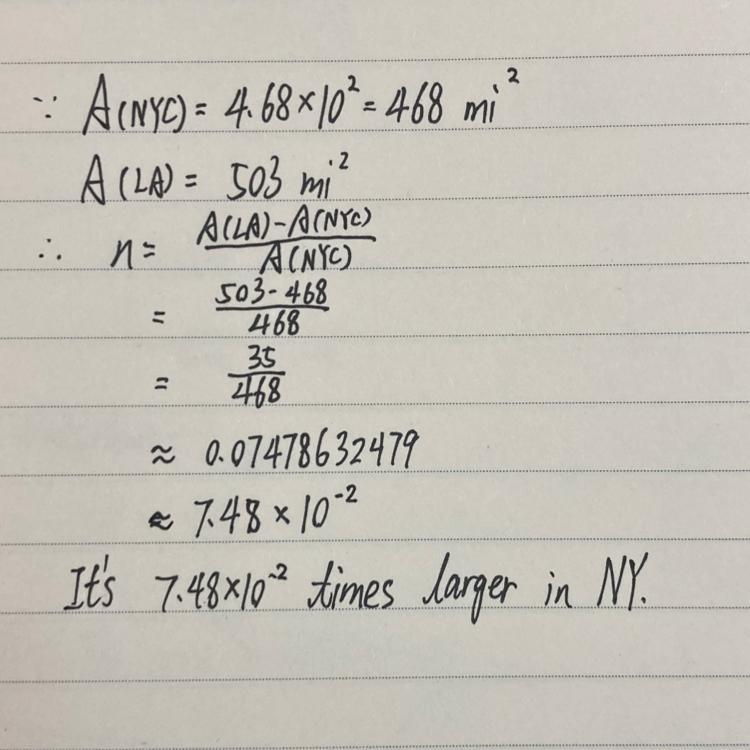 ∵ A(NYC) = 4.68×10² = 468 mi²
A(LA) = 503 mi²
∴ n = \frac{A(LA)-A(NYC)}{A(NYC)}
= \frac{503-468}{468}
= \frac{35}{468}
≈ 0.07478632479
≈ 7.48×10⁻²
It's 7.48×10⁻² times larger in NY.